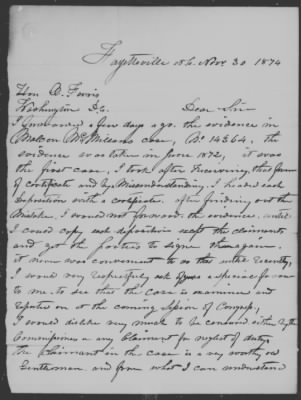 Fayetteville N.C. Nov. 30 1874
Hon O. Ferris
Washington D.C. Dear Sir
I a few days ago the evidence in
Malcom McMillans case, No 14364, the
evidence was taken in June 1872, it was
the first case, I took after receiveing this form
of certificate and by Missunderstanding, I headed each
Deposition with a certificate. after finding out the
Mistake, I would not forward the evidence, until
I could copy each deposition except the claimants
and get the parties to sign them again.
it never was convenient to do this until recently,
I would very respectfuly ask as a special favor
to me to see that the case is examined and
reported on at the coming Session of Congress,
I would dislike very much to be censured either by the
Commissioners or any Claimant for neglect of duty,
the Claimant in the case is a very worthy old
Gentleman and from what I can understand